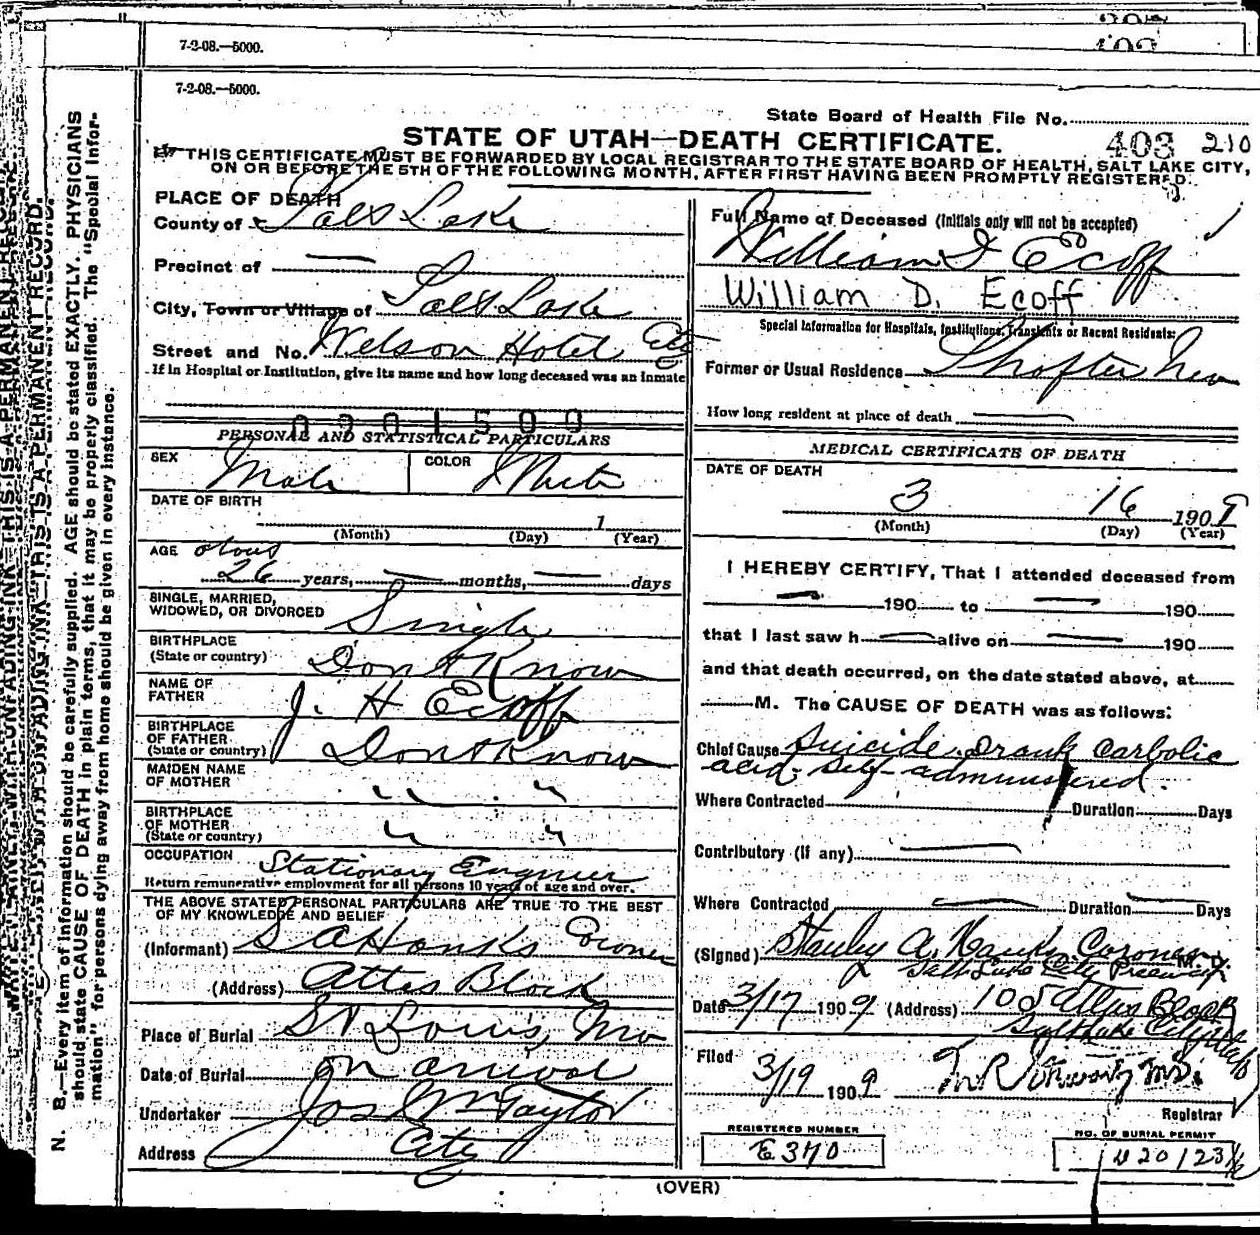 7-2-08.—5000.
7-2-08.—5000.
State Board of Health File No.
403 210
STATE OF UTAH—DEATH CERTIFICATE.
THIS CERTIFICATE MUST BE FORWARDED BY LOCAL REGISTRAR TO THE STATE BOARD OF HEALTH, SALT LAKE CITY,
ON OR BEFORE THE 5TH OF THE FOLLOWING MONTH, AFTER FIRST HAVING BEEN PROMPTLY REGISTERED.
PLACE OF DEATH
County of Salt Lake
Precinct of —
City, Town or Village of Salt Lake
Street and No. Wilson Hotel City
If in Hospital or Institution, give its name and how long deceased was an inmate
0901509
PERSONAL AND STATISTICAL PARTICULARS
SEX Male COLOR White
DATE OF BIRTH
1
(Month) (Day) (Year)
AGE about
26 years, — months, — days
SINGLE, MARRIED,
WIDOWED, OR DIVORCED Single
BIRTHPLACE
(State or country) Don't Know
NAME OF
FATHER J. H Ecoff
BIRTHPLACE
OF FATHER
(State or country) Don't Know
MAIDEN NAME
OF MOTHER " "
BIRTHPLACE
OF MOTHER
(State or country) " "
OCCUPATION Stationary Engineer
Return remunerative employment for all persons 10 years of age and over.
THE ABOVE STATED PERSONAL PARTICULARS ARE TRUE TO THE BEST
OF MY KNOWLEDGE AND BELIEF
(Informant) S A Hanks Coroner
(Address) Atlas Block
Place of Burial St Louis, Mo
Date of Burial on arrival
Undertaker Jos Wm Taylor
Address City
Full Name of Deceased (Initials only will not be accepted)
William D Ecoff
William D. Ecoff
Special Information for Hospitals, Institutions, Transients or Recent Residents:
Former or Usual Residence Shafter Nev
How long resident at place of death —
MEDICAL CERTIFICATE OF DEATH
DATE OF DEATH
3 16 1909
(Month) (Day) (Year)
I HEREBY CERTIFY, That I attended deceased from
— 190 to — 190
that I last saw h — alive on — 190
and that death occurred, on the date stated above, at
M. The CAUSE OF DEATH was as follows:
Chief Cause Suicide. Drank Carbolic
acid. Self-administered.
Where Contracted Duration Days
Contributory (if any) —
Where Contracted — Duration — Days
(Signed) Stanley A. Hanks, Coroner M. D.
Salt Lake City Precinct
Date 3/17 1909 (Address) 105 Atlas Block
Salt Lake City Utah
Filed 3/19 1909
Registrar
REGISTERED NUMBER
E 370
NO. OF BURIAL PERMIT
(OVER)
N. B.—Every item of information should be carefully supplied. AGE should be stated EXACTLY. PHYSICIANS
should state CAUSE OF DEATH in plain terms, that it may be properly classified. The "Special Infor-
mation" for persons dying away from home should be given in every instance.